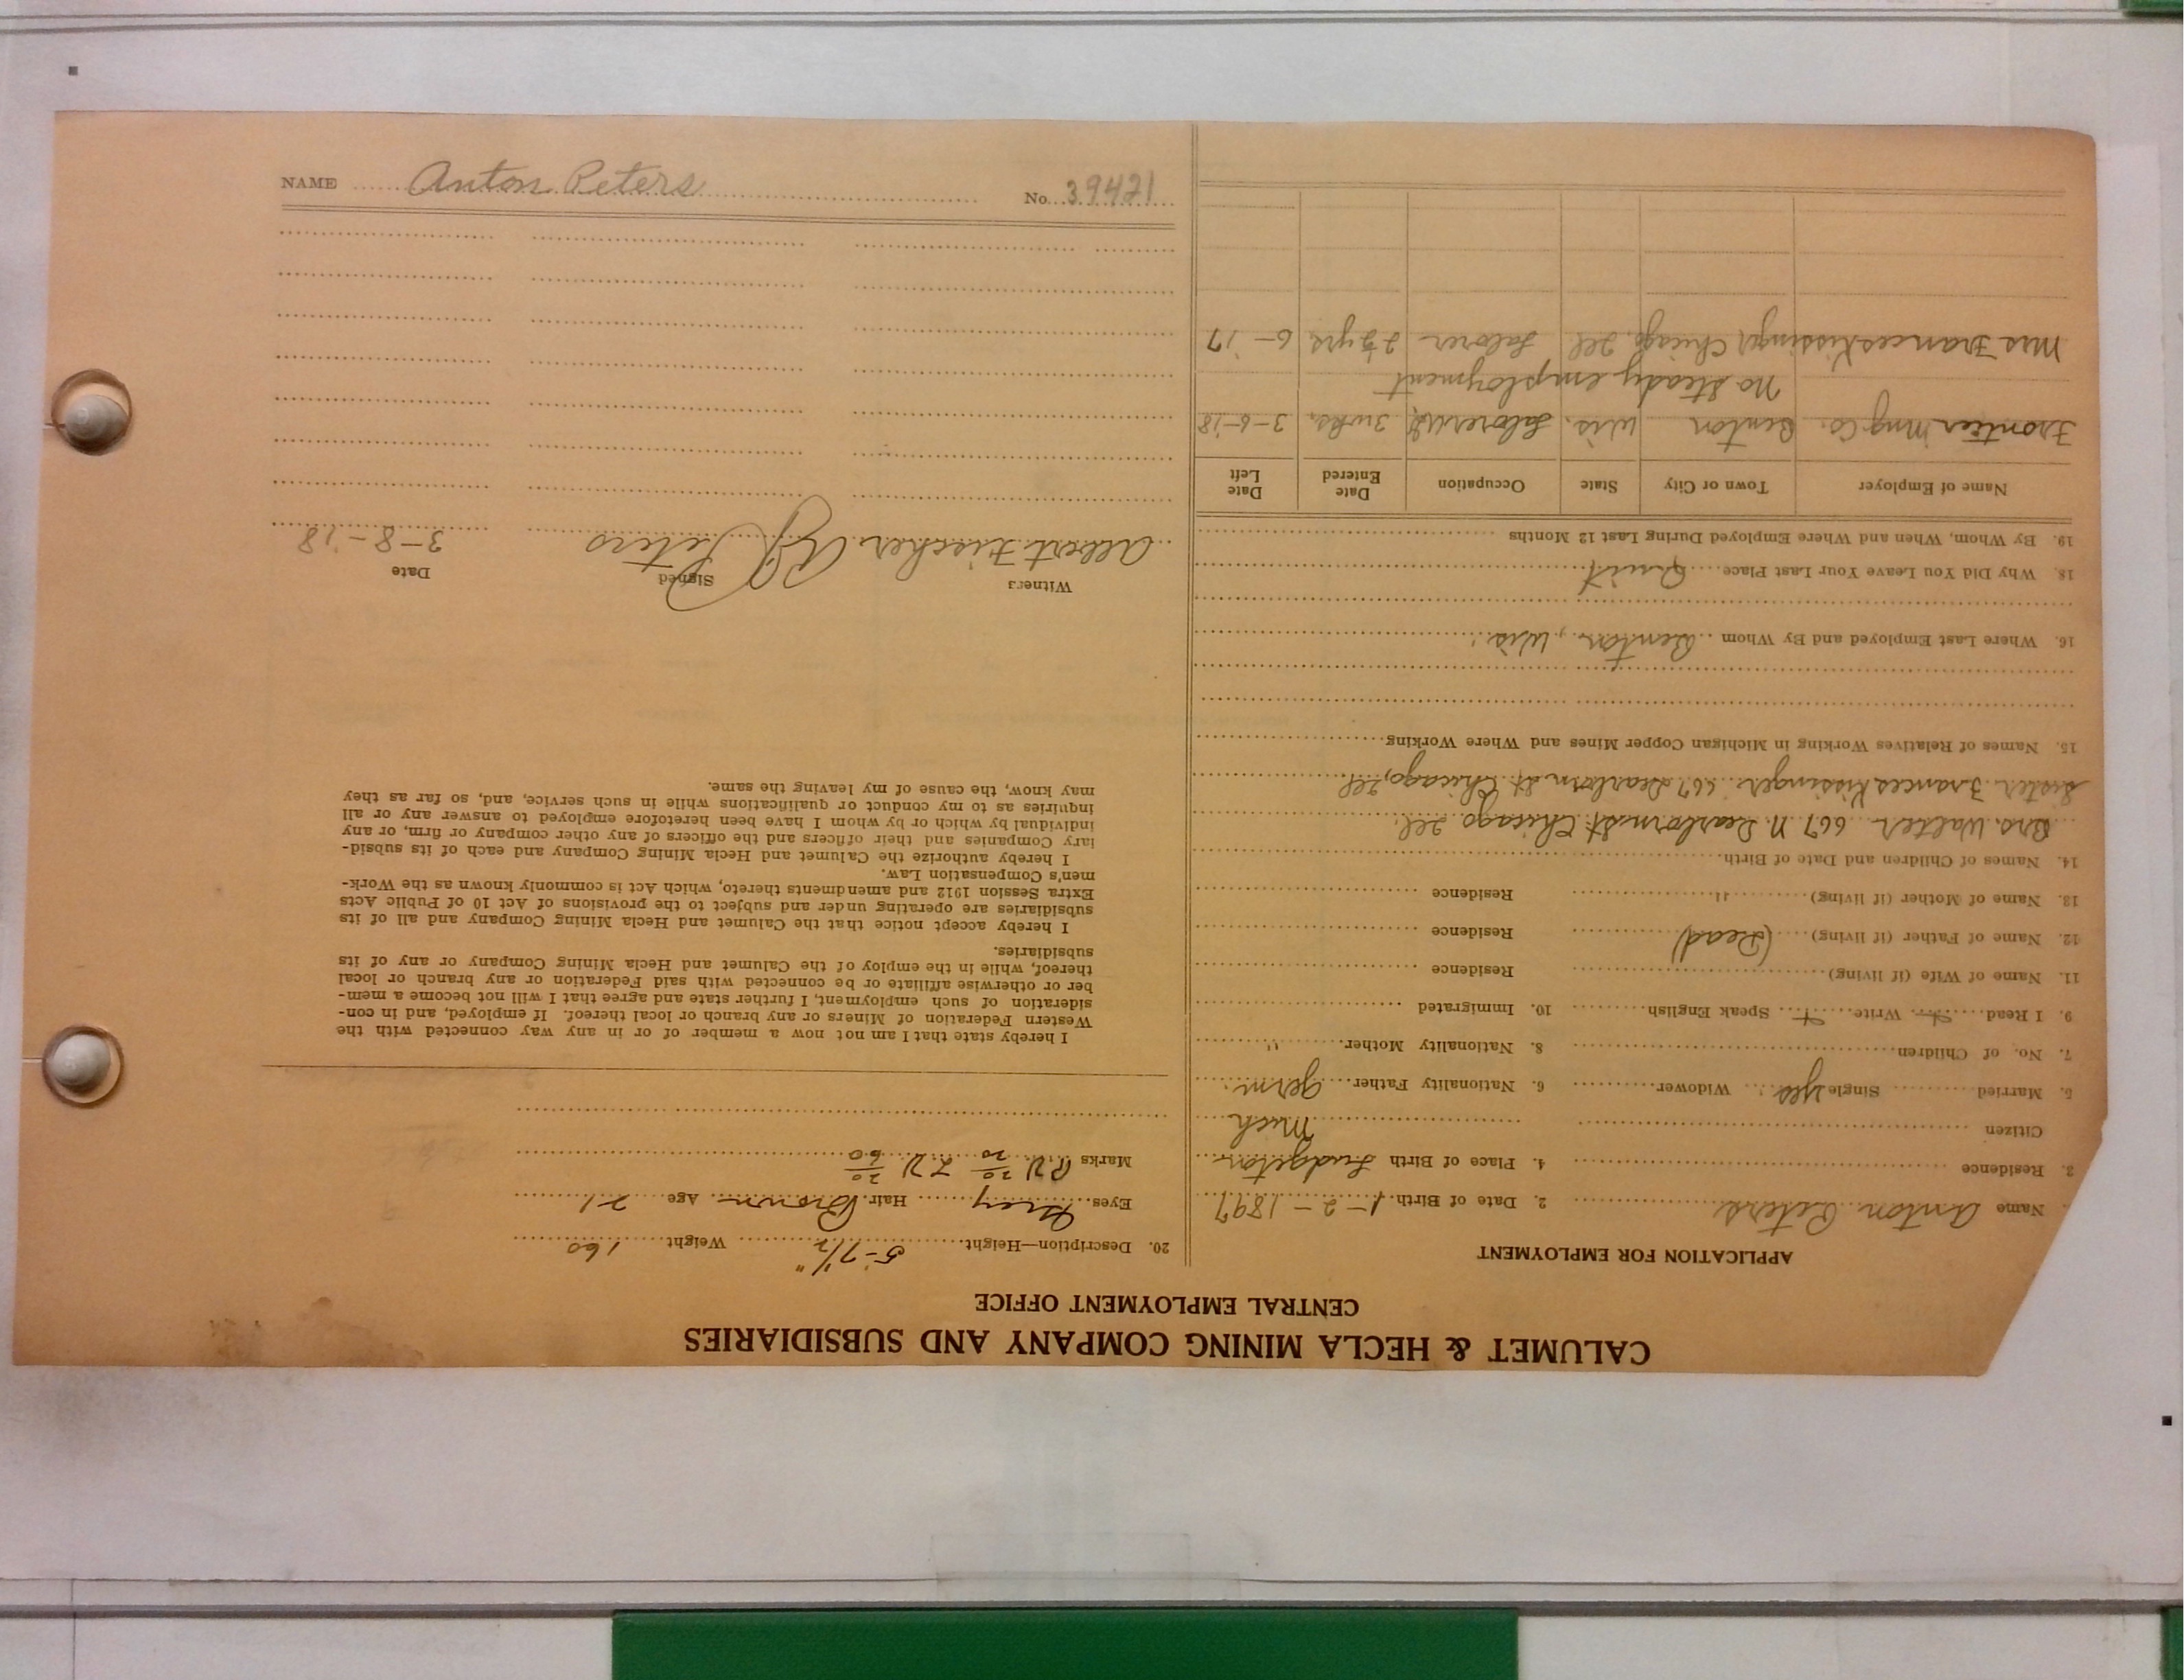 CALUMET & HECLA MINING COMPANY AND SUBSIDIARIES
CENTRAL EMPLOYMENT OFFICE
APPLICATION FOR EMPLOYMENT
Name Anton Peters 2. Date of Birth 1-2-1897
3. Residence 4. Place of Birth Ludgeton
Citizen Mich
5. Married Single yes Widower 6. Nationality Father Germ.
7. No. of Children 8. Nationality Mother "
9. I Read Write Speak English 10. Immigrated
11. Name of Wife (if living) Residence
12. Name of Father (if living) (Dead) Residence
13. Name of Mother (if living) " Residence
14. Names of Children and Date of Birth
Bro. Walter 667 N Dearborn St Chicago Ill.
Sister Frances Kissinger 667 Dearborn St Chicago, Ill
15. Names of Relatives Working in Michigan Copper Mines and Where Working
16. Where Last Employed and By Whom Benton, Wis.
18. Why Did You Leave Your Last Place Quit
19. By Whom, When and Where Employed During Last 12 Months
Name of Employer Town or City State Occupation Date Entered Date Left
Frontier Mng Co. Benton Wis. Laborer 3 wks. 3-6-'18
No steady employment
Mrs Frances Kissinger Chicago Ill Laborer 2½ yrs 6-'17
20. Description—Height 5'-7½" Weight 160
Eyes Grey Hair Brown Age 21
Marks RV 20/20 LV 20/60
I hereby state that I am not now a member of or in any way connected with the
Western Federation of Miners or any branch or local thereof. If employed, and in con-
sideration of such employment, I further state and agree that I will not become a mem-
ber or otherwise affiliate or be connected with said Federation or any branch or local
thereof, while in the employ of the Calumet and Hecla Mining Company or any of its
subsidiaries.
I hereby accept notice that the Calumet and Hecla Mining Company and all of its
subsidiaries are operating under and subject to the provisions of Act 10 of Public Acts
Extra Session 1912 and amendments thereto, which Act is commonly known as the Work-
men's Compensation Law.
I hereby authorize the Calumet and Hecla Mining Company and each of its subsid-
iary Companies and their officers and the officers of any other company or firm, or any
individual by which or by whom I have been heretofore employed to answer any or all
inquiries as to my conduct or qualifications while in such service, and, so far as they
may know, the cause of my leaving the same.
Witness Signed Date
Albert Fischer Peters 3-8-'18
NAME Anton Peters No. 39421